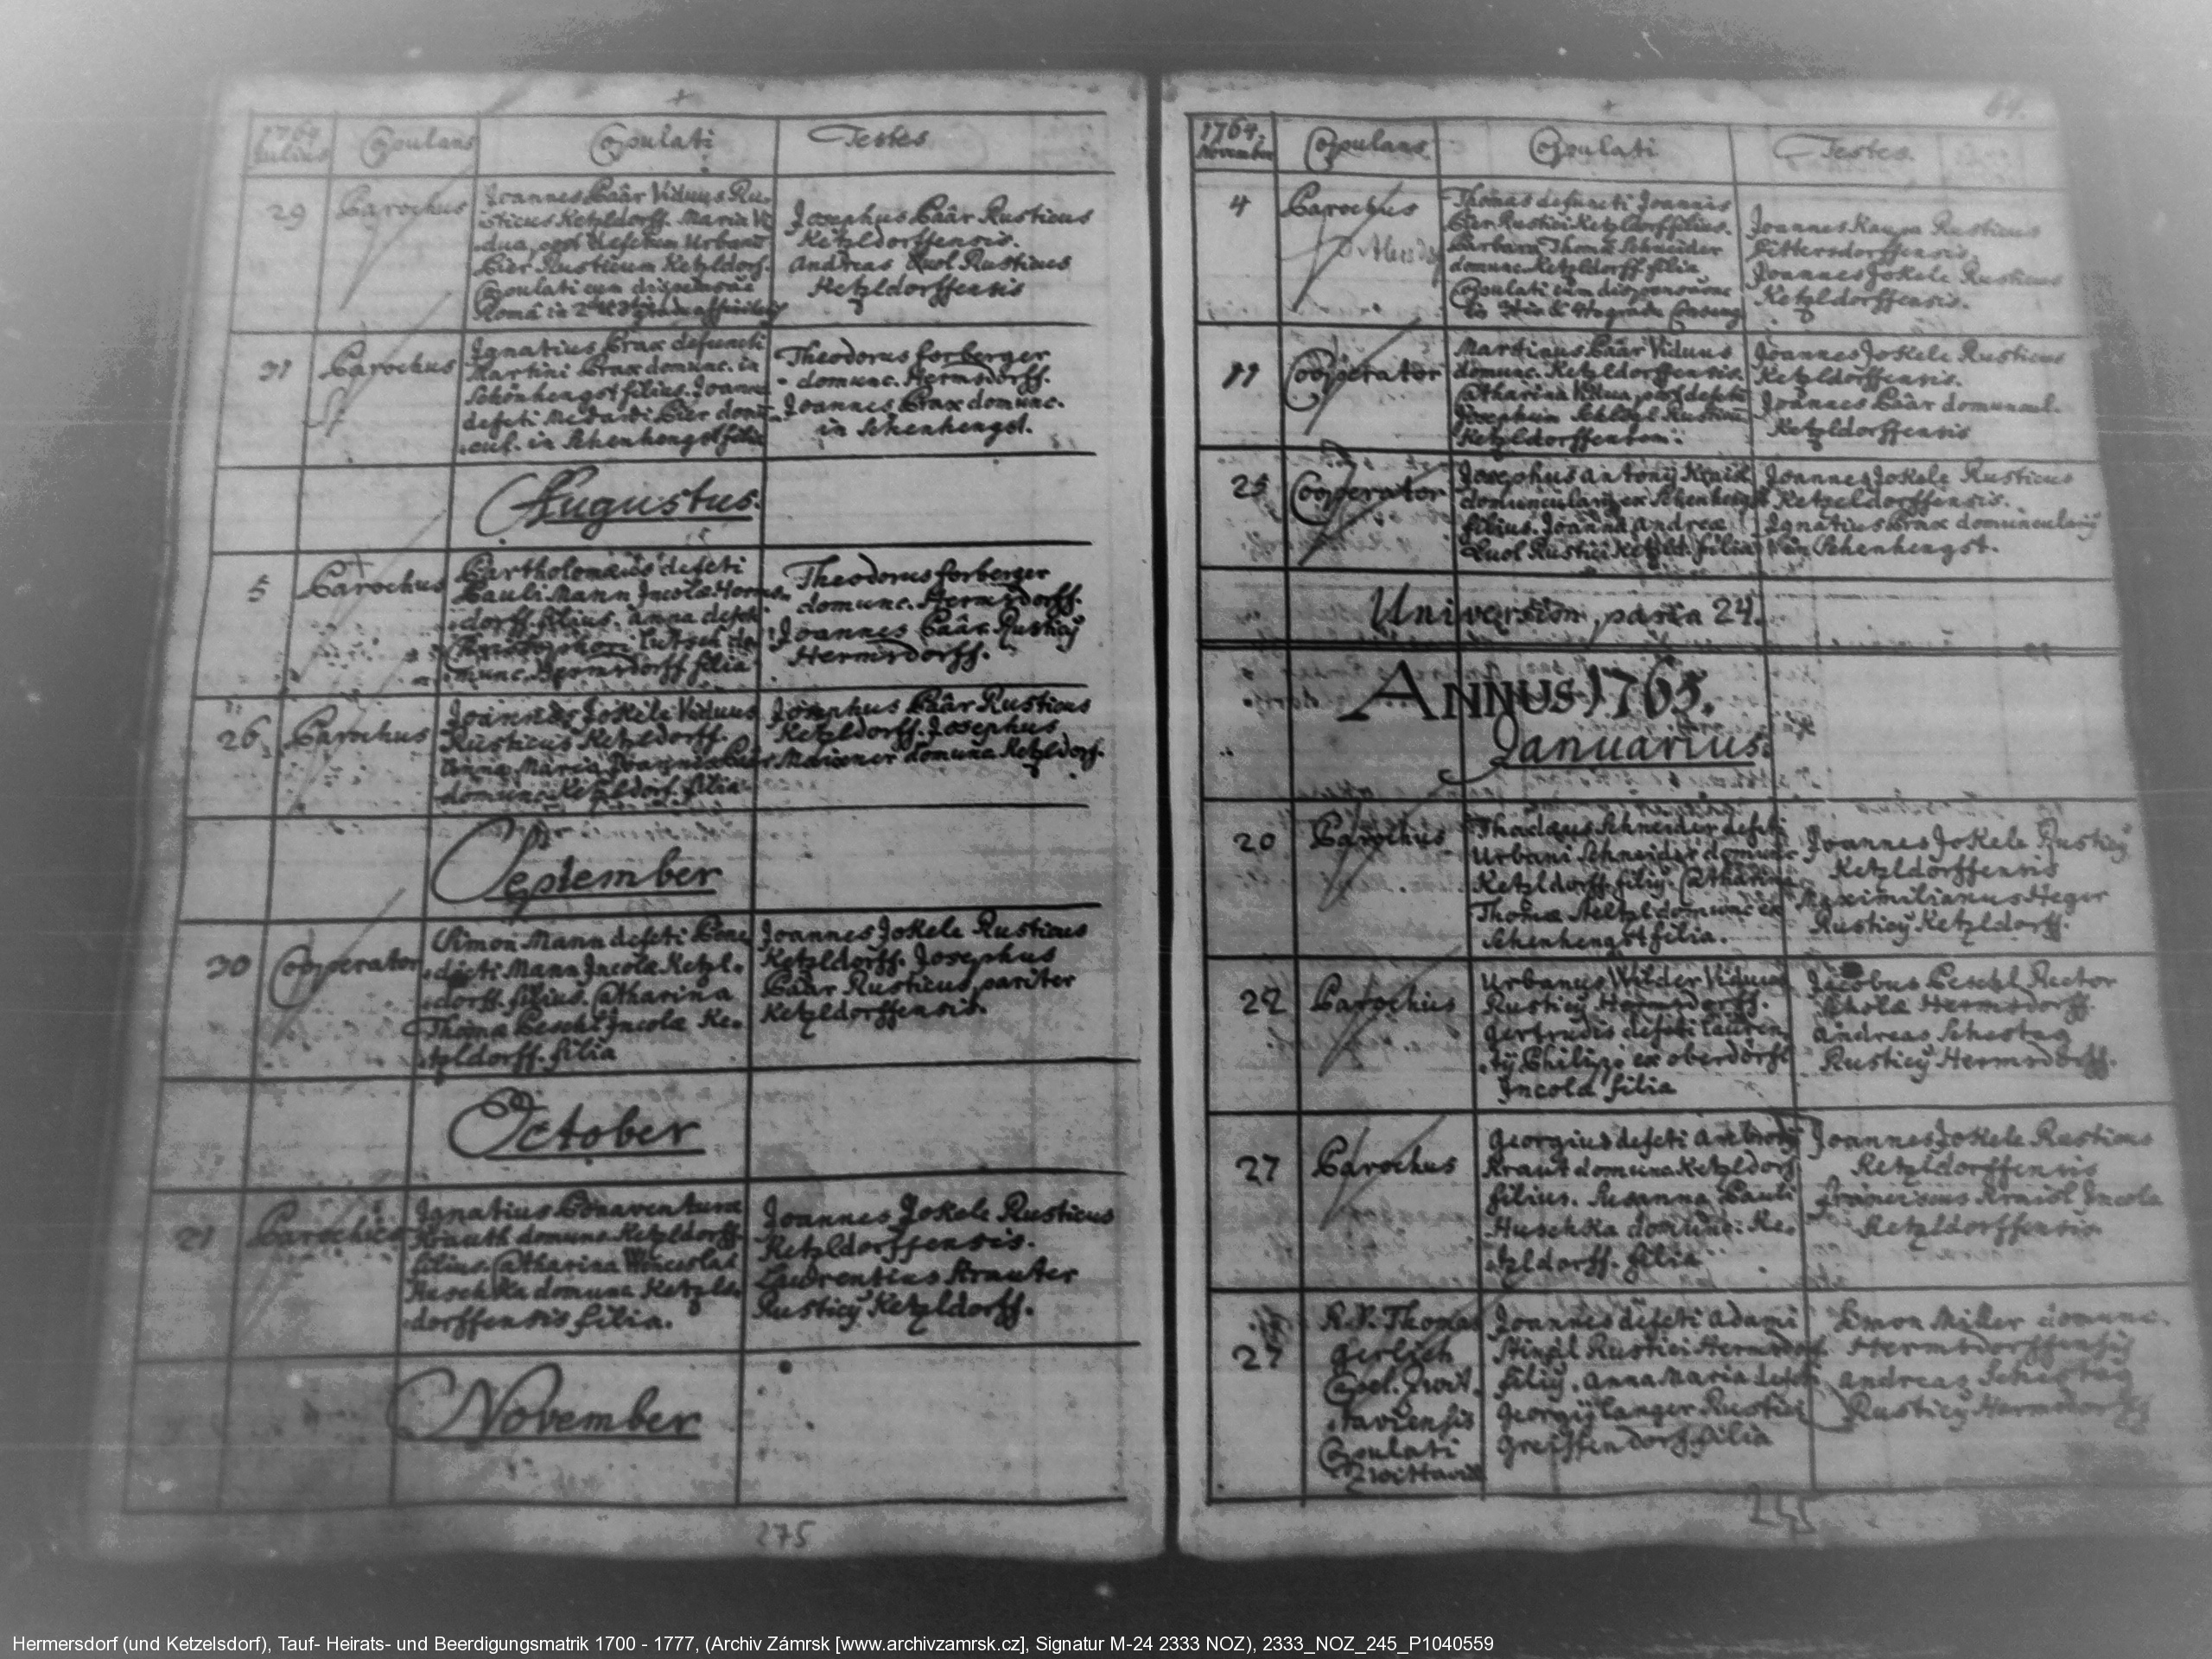 1764 Julius Copulans Copulati Testes
29 Parochus
Joannes Paâr Viduus Ru-
sticus Ketzldorff. Maria Vi-
dua post defctum Urbanū
Pier Rusticum Ketzldorf.
Copulati cum dispensaōe
Româ in 2do
Josephus Paâr Rusticus
Ketzldorffensis.
Andreas Luol Rusticus
Ketzldorffensis
31 Parochus
Ignatius Prax defuncti
Martini Prax domunc. in
Schönhengst filius. Joanna
defcti Medardi Pier domū-
cul. in Schenhengst filia
Theodorus forberger
domunc. Hermsdorff.
Joannes Prax domunc.
in Schenhengst.
Augustus.
5 Parochus
Bartholomæus defcti
Pauli Mann Incolæ Herms-
dorff. filius. Anna defcti
munc. Hermsdorff filia
Theodorus forberger
domunc. Hermsdorff.
Joannes Paâr Rusticy
Hermsdorff.
26. Parochus
Joannes Jokele Viduus
Rusticus Ketzldorff.
Anna Maria Joannis Pier
domunc. Ketzldorf. filia
Josephus Paâr Rusticus
Ketzldorff. Josephus
Meixner domunc. Ketzldorf.
September
30 Cooperator
Simon Mann defcti Bene-
dicti Mann Incolæ Ketzl-
dorff. filius. Catharina
Thoma Peschl Incolæ Ke-
tzldorff. filia
Joannes Jokele Rusticus
Ketzldorff. Josephus
Paâr Rusticus pariter
Ketzldorffensis.
October
21 Parochus
Ignatius Bonaventuræ
Krauth domunc. Ketzldorff.
filius. Catharina Wenceslai
Huschka domunc. Ketzl-
dorffensis filia.
Joannes Jokele Rusticus
Ketzldorffensis.
Laurentius Krauter
Rusticy Ketzldorff.
November
275
64.
1764. November Copulans Copulati Testes
4 Parochus
Thomas defuncti Joannis
Pier Rustici Ketzldorf filius.
Barbara Thomæ Schneider
domunc. Ketzldorff filia
Copulati cum dispensaōne
Joannes Kaupa Rusticus
Pittersdorffensis.
Joannes Jokele Rusticus
Ketzldorffensis.
11 Cooperator
Martinus Paâr Viduus
domunc. Ketzldorffensis.
Catharina Vidua post defctū
Josephum Schlögl Rusticū
Ketzldorffensem.
Joannes Jokele Rusticus
Ketzldorffensis.
Joannes Paâr domuncul.
Ketzldorffensis
25 Cooperator
Josephus Antonÿ Kraisl
domuncularÿ ex Schenhengst
filius. Joanna Andreæ
Luol Rustici Ketzld. filia
Joannes Jokele Rusticus
Ketzeldorffensis.
Ignatius Prax domuncularÿ
in Schenhengst.
Universim paria 24.
ANNUS 1765.
Januarius.
20 Parochus
Thadæus Schneider defcti
Urbani Schneider domunc.
Ketzldorff. filiy. Catharina
Thomæ Steltzl domunc ex
Schenhengst filia.
Joannes Jokele Rusticy
Ketzldorffensis
Maximilianus Heger
Rusticy Ketzldorff.
22 Parochus
Urbanus Wilder Viduus
Rusticy Hermsdorff.
Gertrudis defcti Lauren-
tÿ Philipp ex oberdörfl
Incolæ filia
Jacobus Peschl Rector
Scholæ Hermsdorff
Andreas Schestag
Rusticy Hermsdorff.
27 Parochus
Georgius defcti Ambrosÿ
Kraut domunc. Ketzldorf
filius. Susanna Pauli
Huschka domunc. Ke-
tzldorff. filia
Joannes Jokele Rusticus
Ketzldorffensis
Franciscus Kraisl Incola
Ketzldorffensis
27
R.P. Thomas
Gerlich
Capel. Zwit-
taviensis
Copulati
Zwittaviæ
Joannes defcti Adami
Rustici Hermsdorf.
filiy. Anna Maria defcti
Georgÿ Langer Rustici
Greiffendorf filia
Simon Miller domunc.
Hermsdorffensis
Andreas Schestag
Rusticy Hermsdorff
245
Hermersdorf (und Ketzelsdorf), Tauf- Heirats- und Beerdigungsmatrik 1700 - 1777, (Archiv Zámrsk [www.archivzamrsk.cz], Signatur M-24 2333 NOZ), 2333_NOZ_245_P1040559